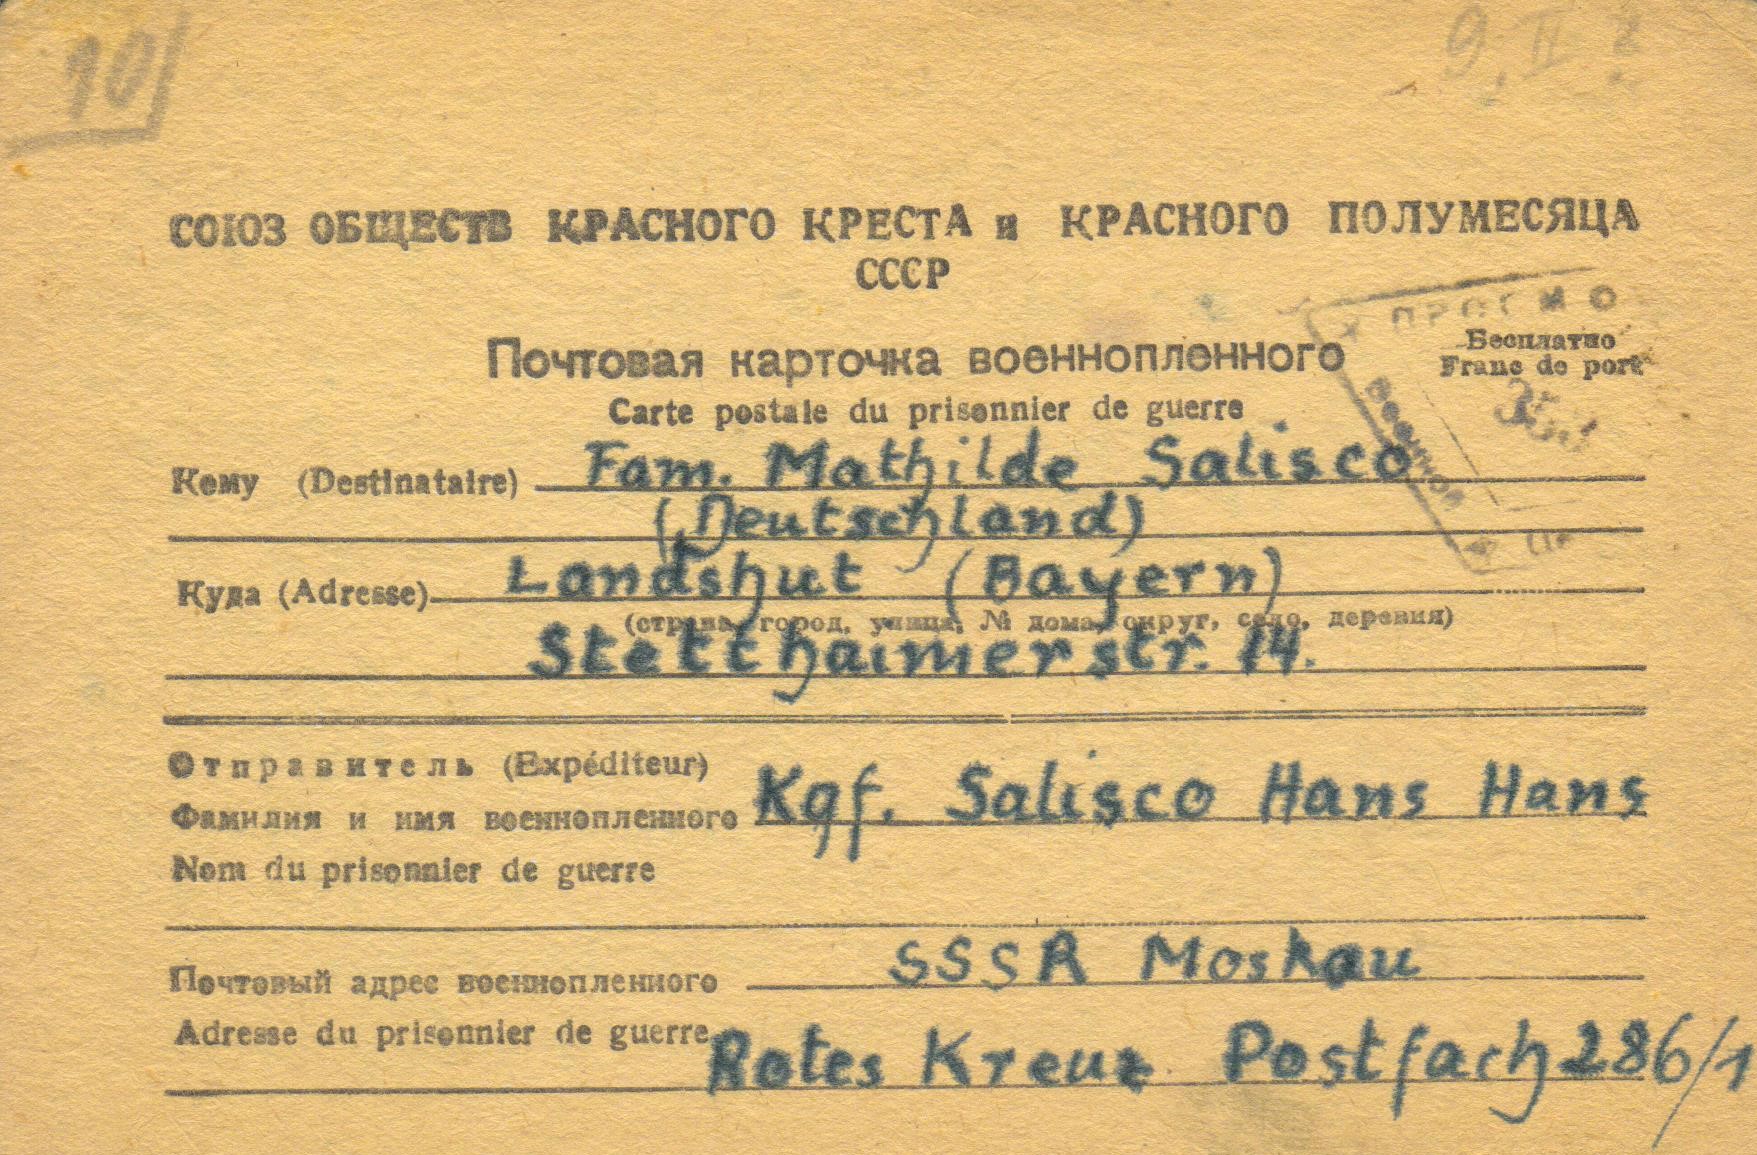 10
9. II
СОЮЗ ОБЩЕСТВ КРАСНОГО КРЕСТА и КРАСНОГО ПОЛУМЕСЯЦА
СССР
Почтовая карточка военнопленного
Бесплатно
Franc de port
Carte postale du prisonnier de guerre
Кому (Destinataire) Fam. Mathilde Salisco
(Deutschland)
Куда (Adresse) Landshut (Bayern)
(страна, город, улица, № дома, округ, село, деревня)
Stetthaimerstr. 14.
Отправитель (Expéditeur)
Фамилия и имя военнопленного Kgf. Salisco Hans Hans
Nom du prisonnier de guerre
Почтовый адрес военнопленного SSSR Moskau
Adresse du prisonnier de guerre Rotes Kreuz Postfach 286/1